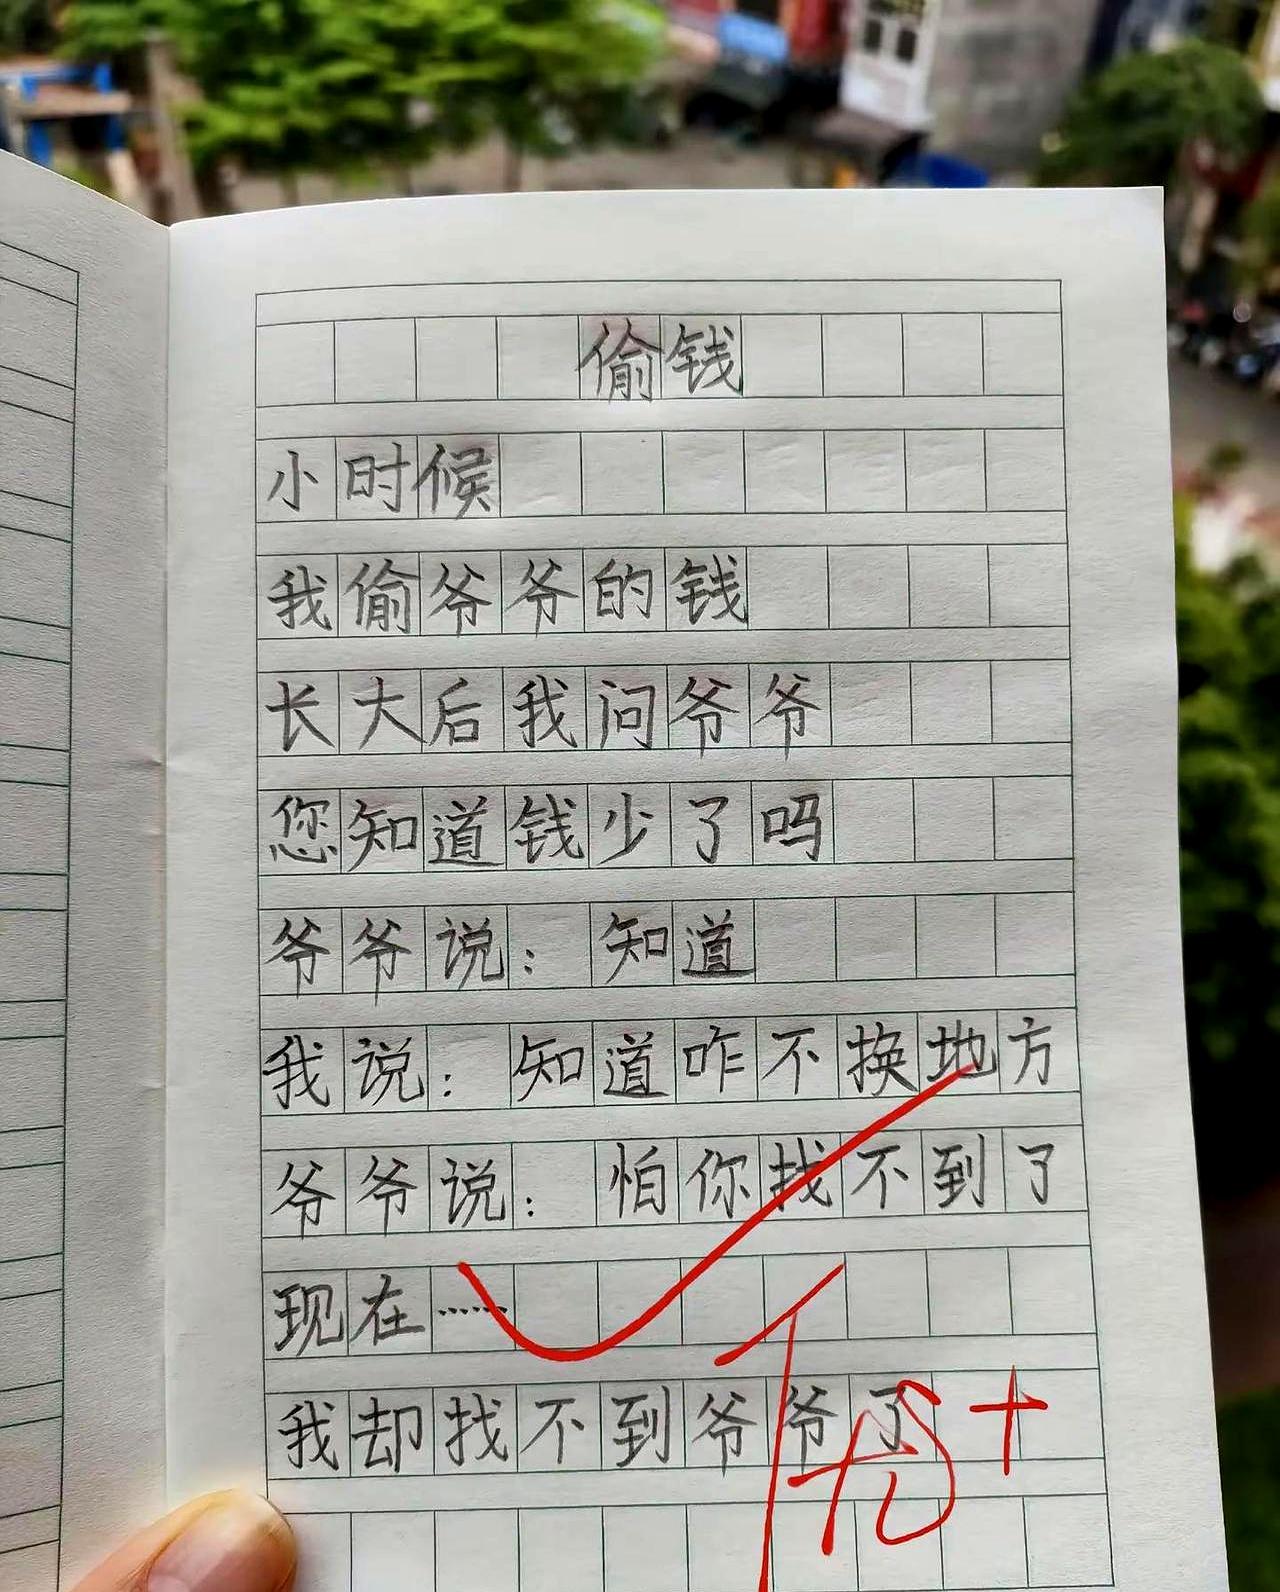 偷钱
小时候
我偷爷爷的钱
长大后我问爷爷
您知道钱少了吗
爷爷说：知道
我说：知道咋不换地方
爷爷说：怕你找不到了
现在……
我却找不到爷爷了
优+